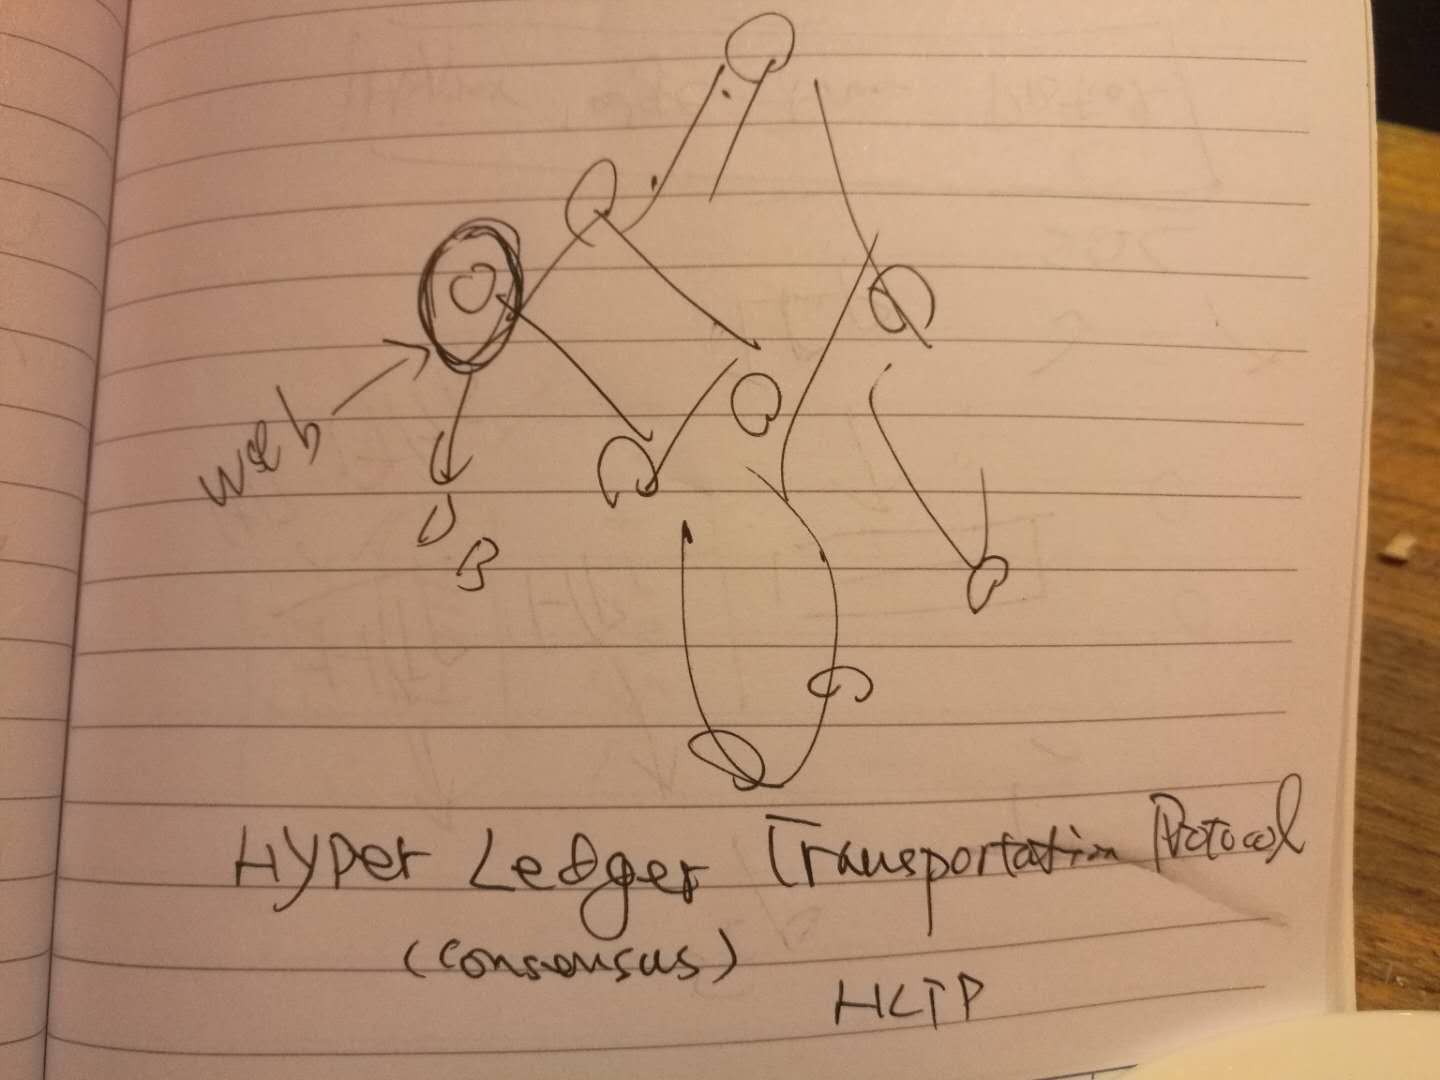 Web
DB
Hyper Ledger Transportation Protocol
(consensus)
HLTP